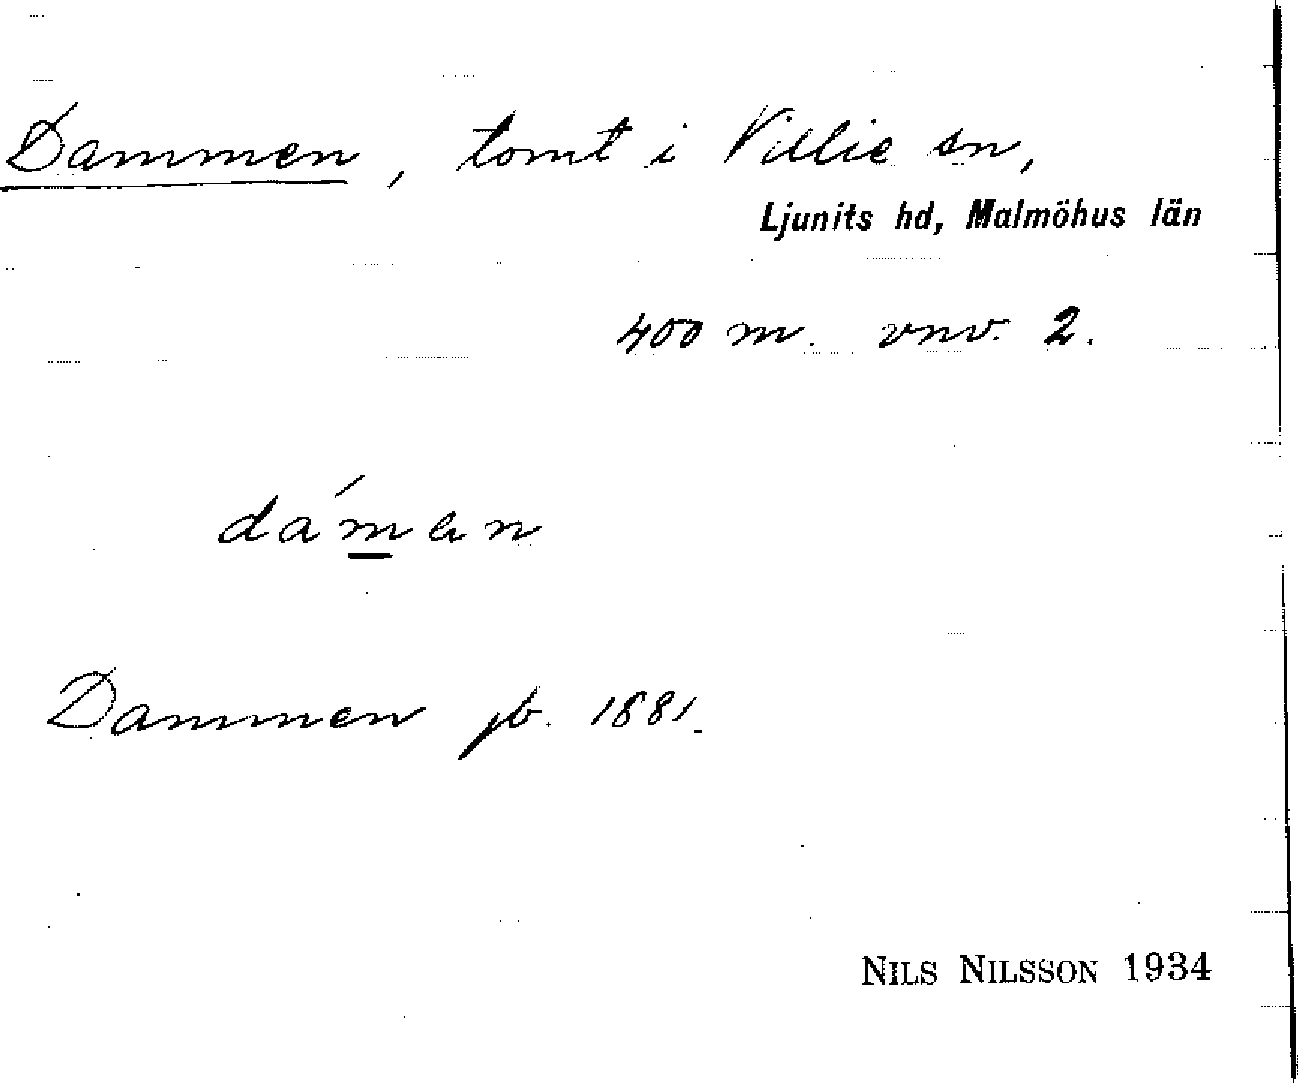 Dammen, tomt i Villie sn,
Ljunits hd, Malmöhus län
400 m. vnv. 2.
Dammen jb. 1881.
NILS NILSSON 1934